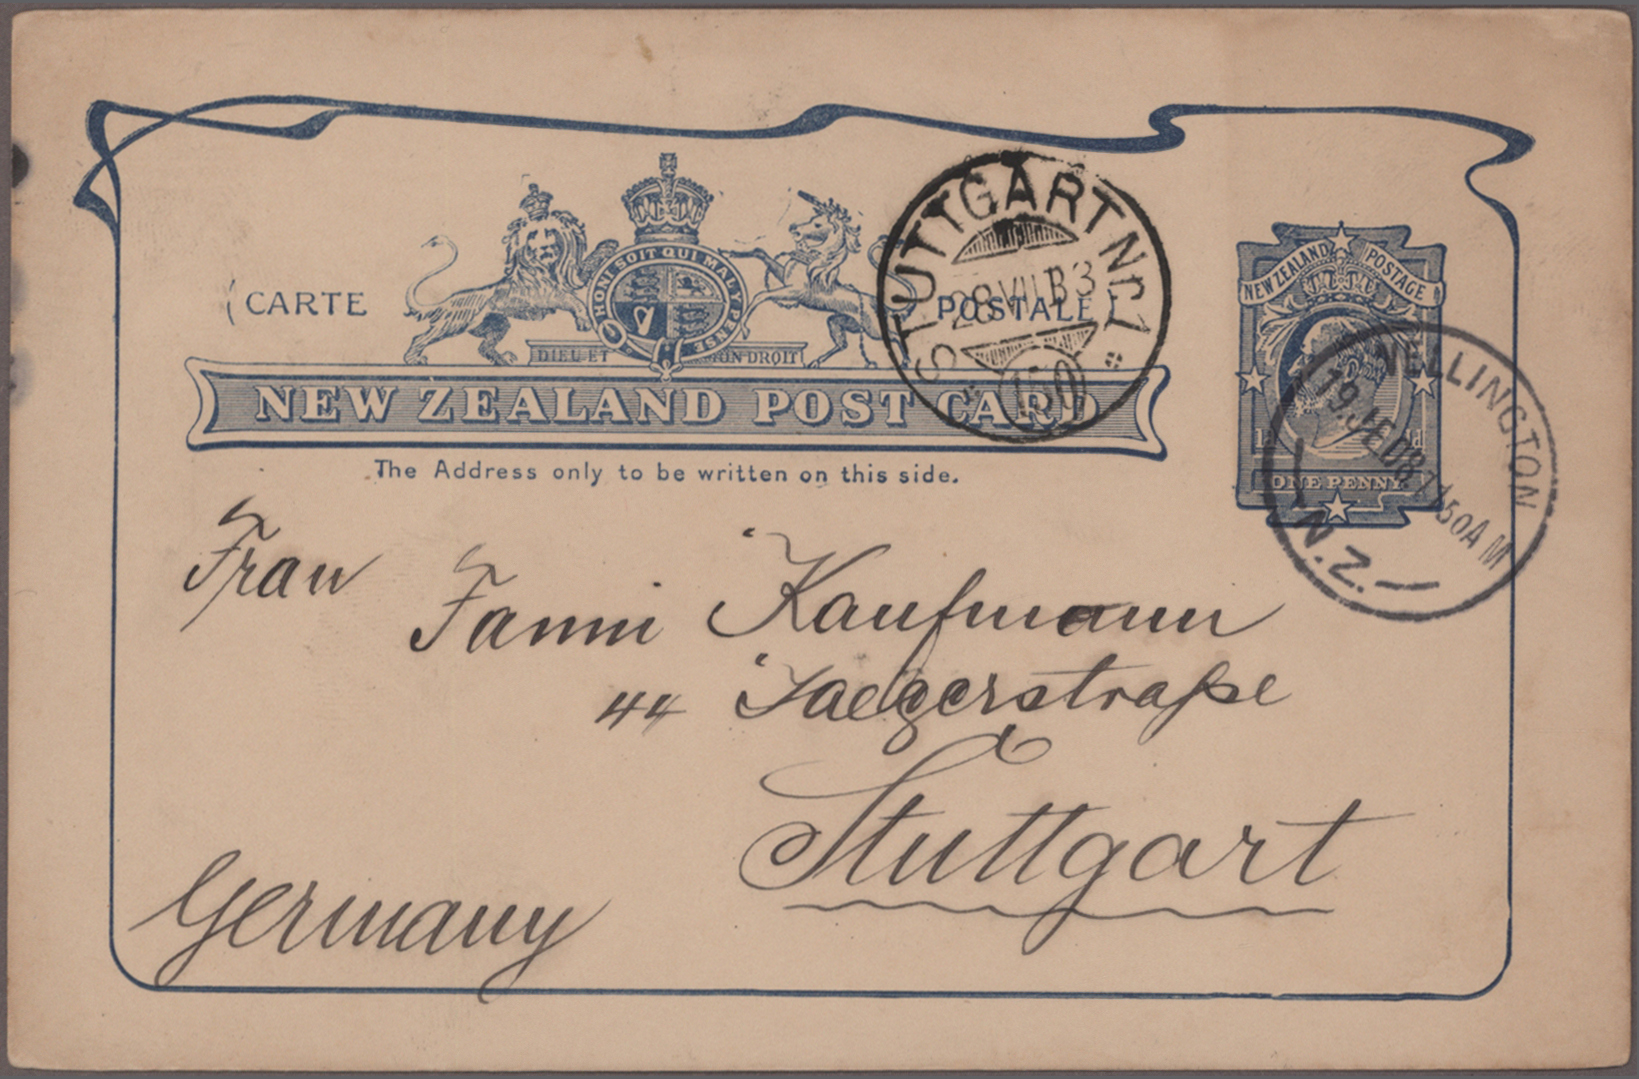 (CARTE POSTALE)
HONI SOIT QUI MAL Y PENSE
DIEU ET MON DROIT
NEW ZEALAND POST CARD
The Address only to be written on this side.
STUTTGART Nr. 1
28 VII B 3
150
NEW ZEALAND POSTAGE
1d 1d
ONE PENNY
WELLINGTON
50 A M
N.Z.
Frau
Fanni Kaufmann
44 Jaegerstraße
Stuttgart
Germany